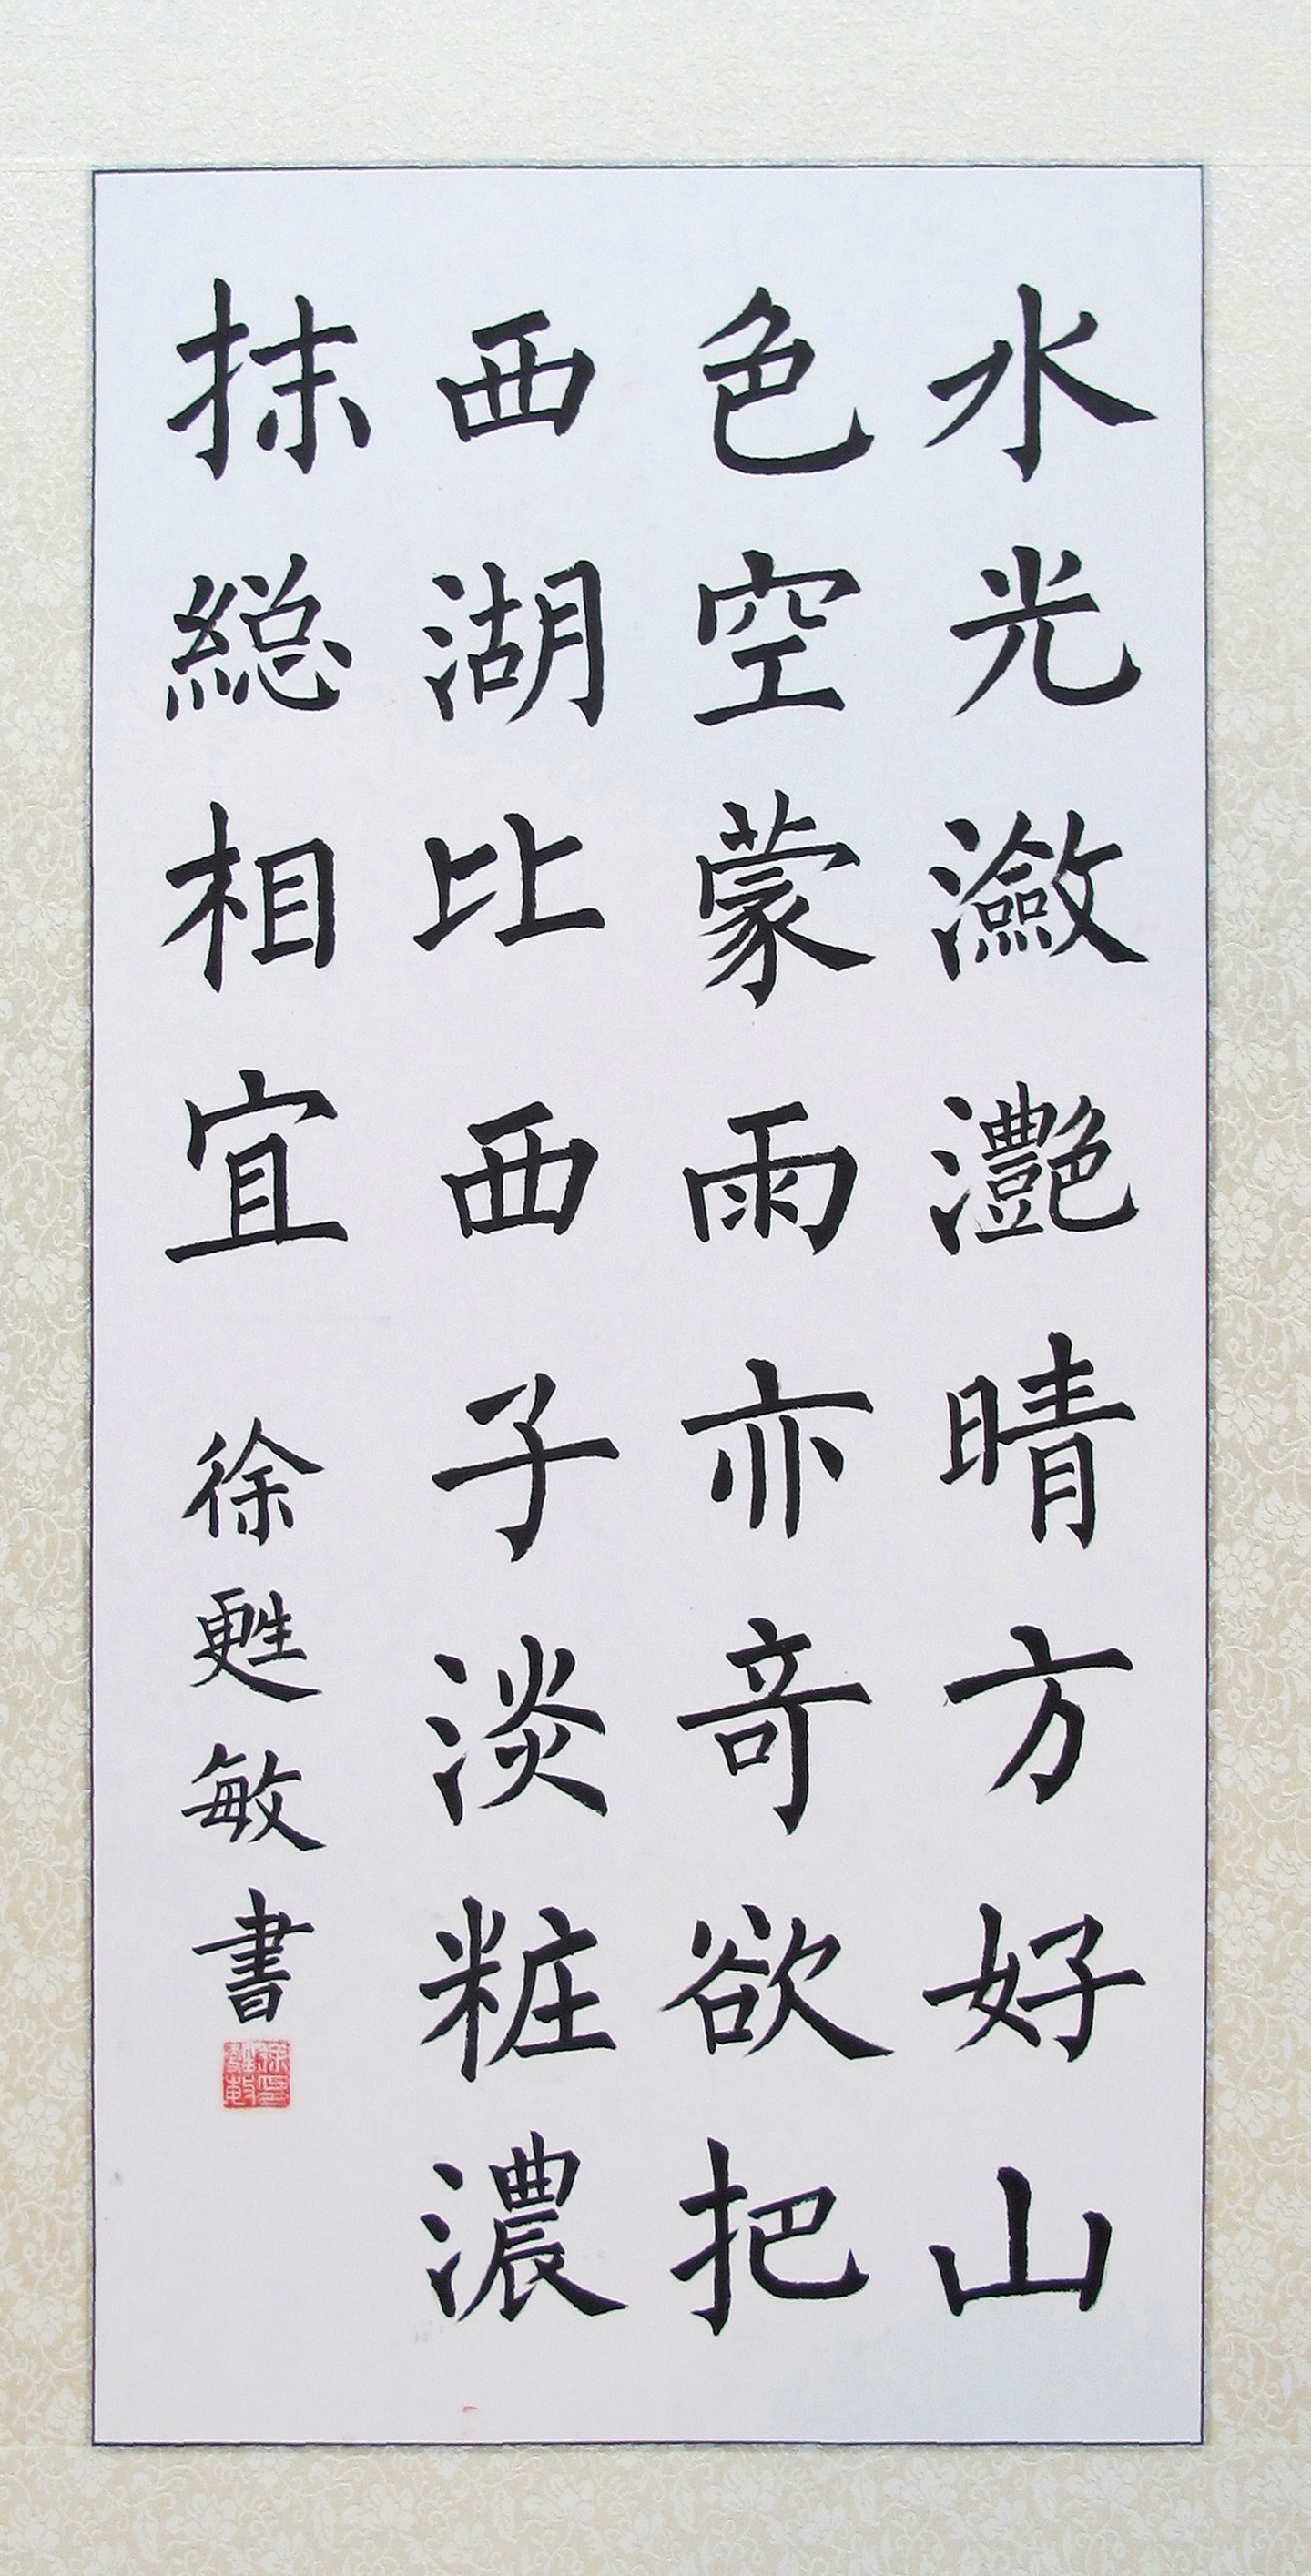 水光瀲灔晴方好山
色空蒙雨亦竒欲把
西湖比西子淡粧濃
抹緫相宜 徐甦敏書